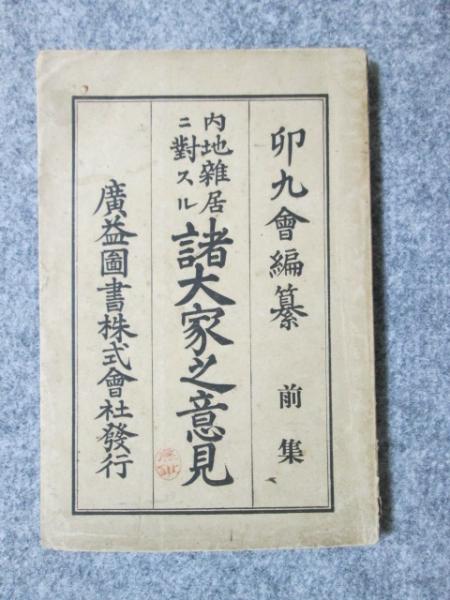 卯九會編纂 前集
内地雜居
ニ對スル
諸大家之意見
廣益圖書株式會社發行